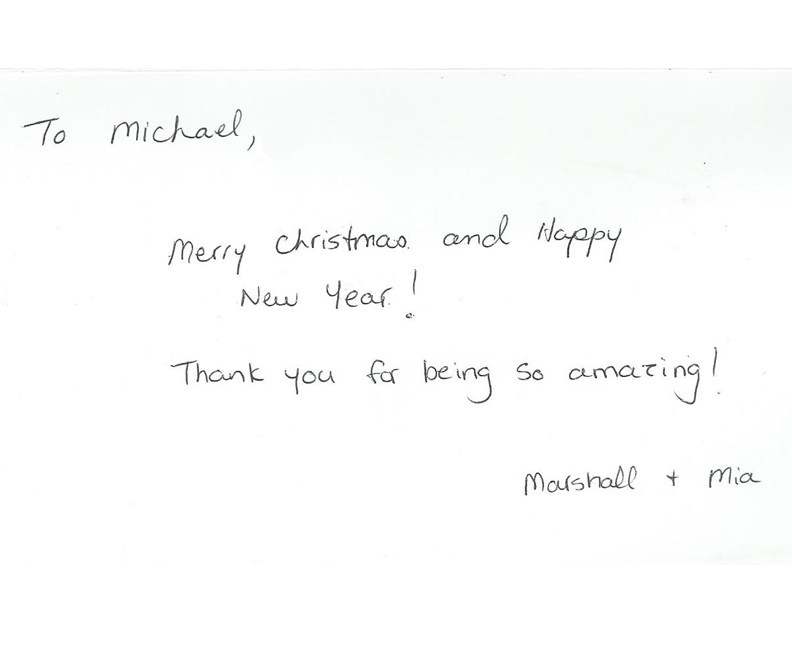 To Michael,
Merry Christmas and Happy
New Year!
Thank you for being so amazing!
Marshall + Mia